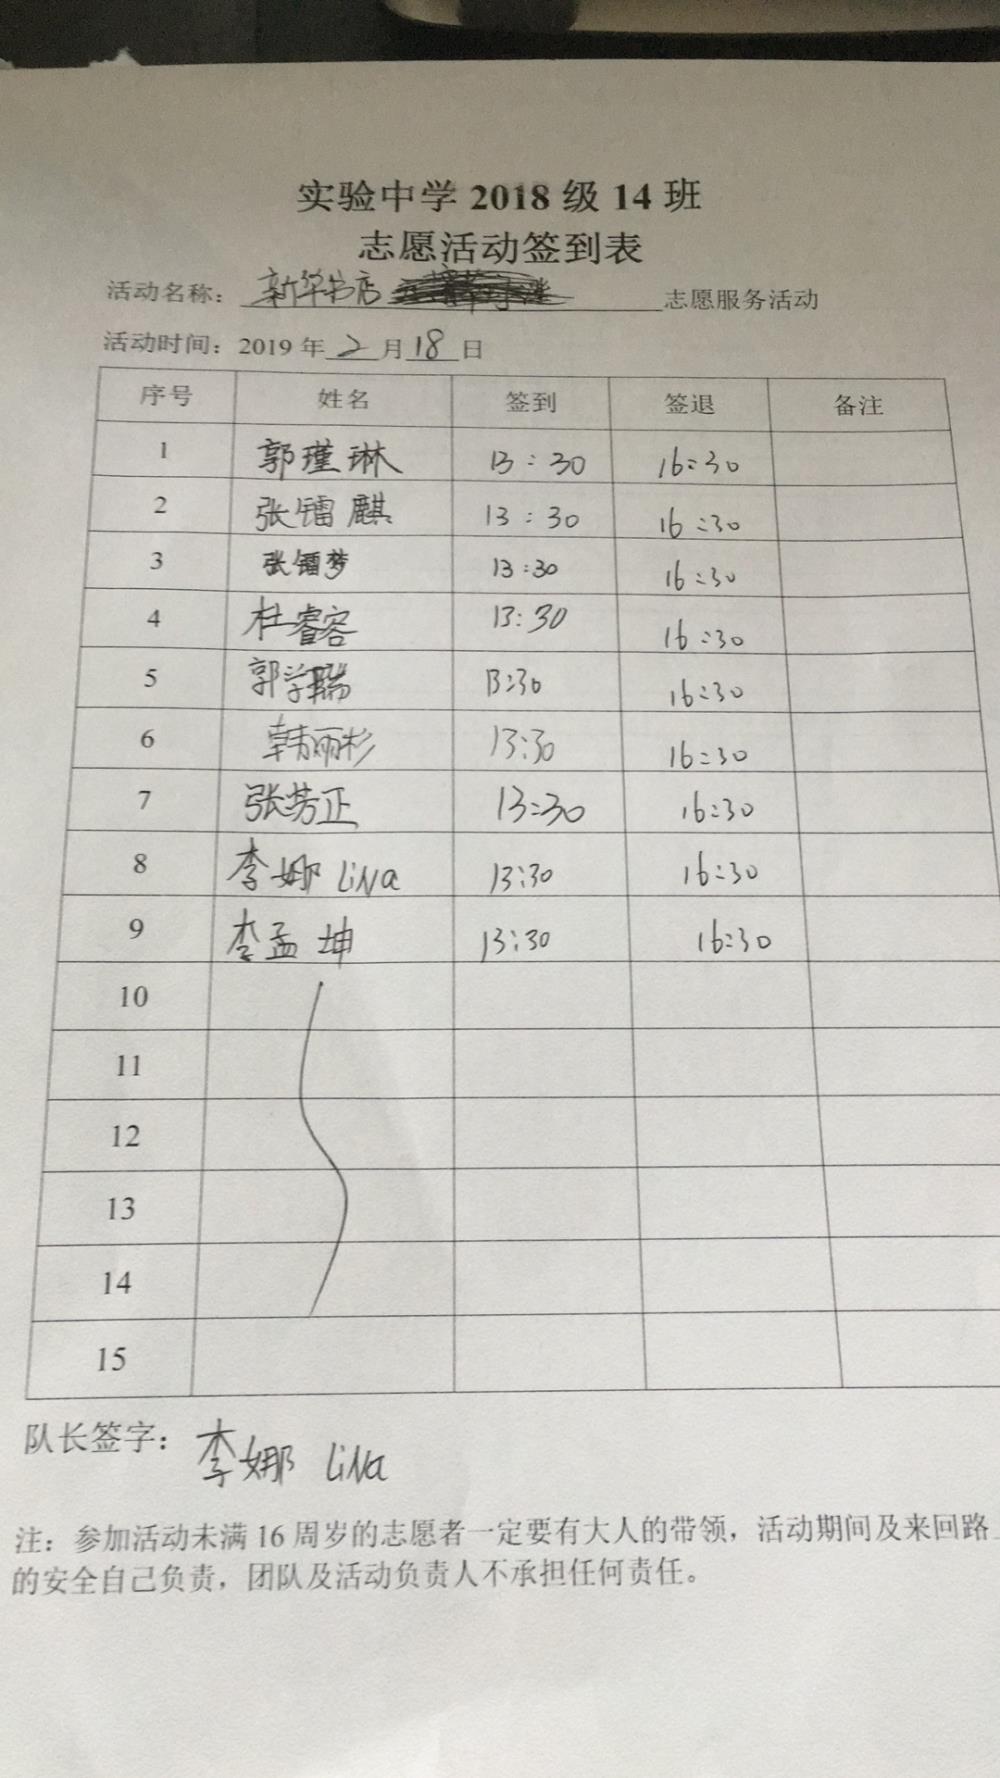 实验中学2018级14班
志愿活动签到表
活动名称：新华书店 志愿服务活动
活动时间：2019年2月18日
序号 姓名 签到 签退 备注
1 郭瑾琳 13:30 16:30
2 张镭麒 13:30 16:30
3 张镭梦 13:30 16:30
4 杜睿容 13:30 16:30
5 郭学瑞 13:30 16:30
6 韩丽杉 13:30 16:30
7 张芳正 13:30 16:30
8 李娜 LiNa 13:30 16:30
9 李孟坤 13:30 16:30
10
11
12
13
14
15
队长签字：李娜 LiNa
注：参加活动未满16周岁的志愿者一定要有大人的带领，活动期间及来回路
的安全自己负责，团队及活动负责人不承担任何责任。